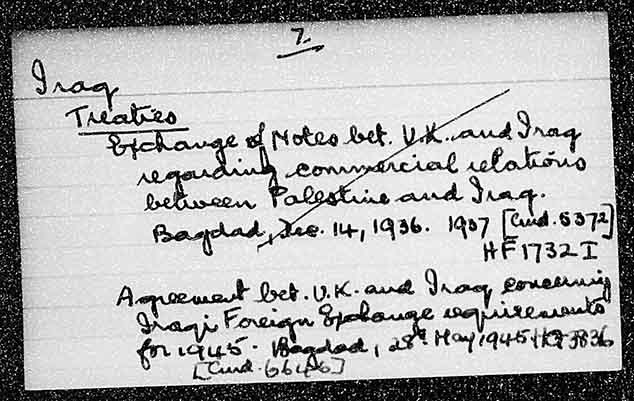 7.
Iraq
Treaties
Exchange of Notes bet. U.K. and Iraq
regarding commercial relations
between Palestine and Iraq.
Bagdad, Dec. 14, 1936. 1937 [Cmd. 5372]
HF 1732 I
Agreement bet. U.K. and Iraq concerning
Iraqi Foreign Exchange requirements
for 1945. Bagdad, 28th May 1945 3836
[Cmd. 6646]